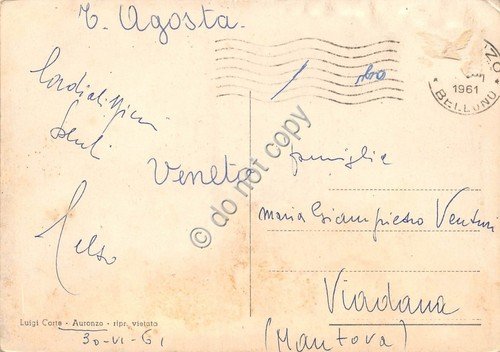 T. Agosta.
1961
BELLUNO
Cordialissimi
Saluti
Veneta
famiglia
Maria Giampietro Venturi
Celso
Viadana
(Mantova)
Luigi Corte - Auronzo - ripr. vietata
30-VI-61
© do not copy